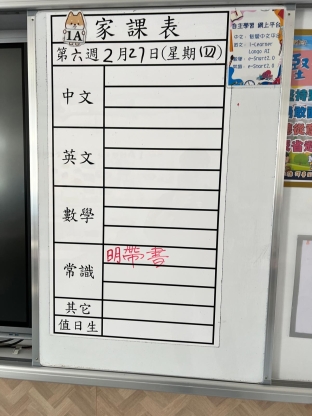 1A 家課表
第六週2月27日(星期四)
中文
英文
數學
常識 明帶書
其它
值日生
自主學習 網上平台
i-Learner
Lango AI
e-Smart2.0
e-Smart2.0